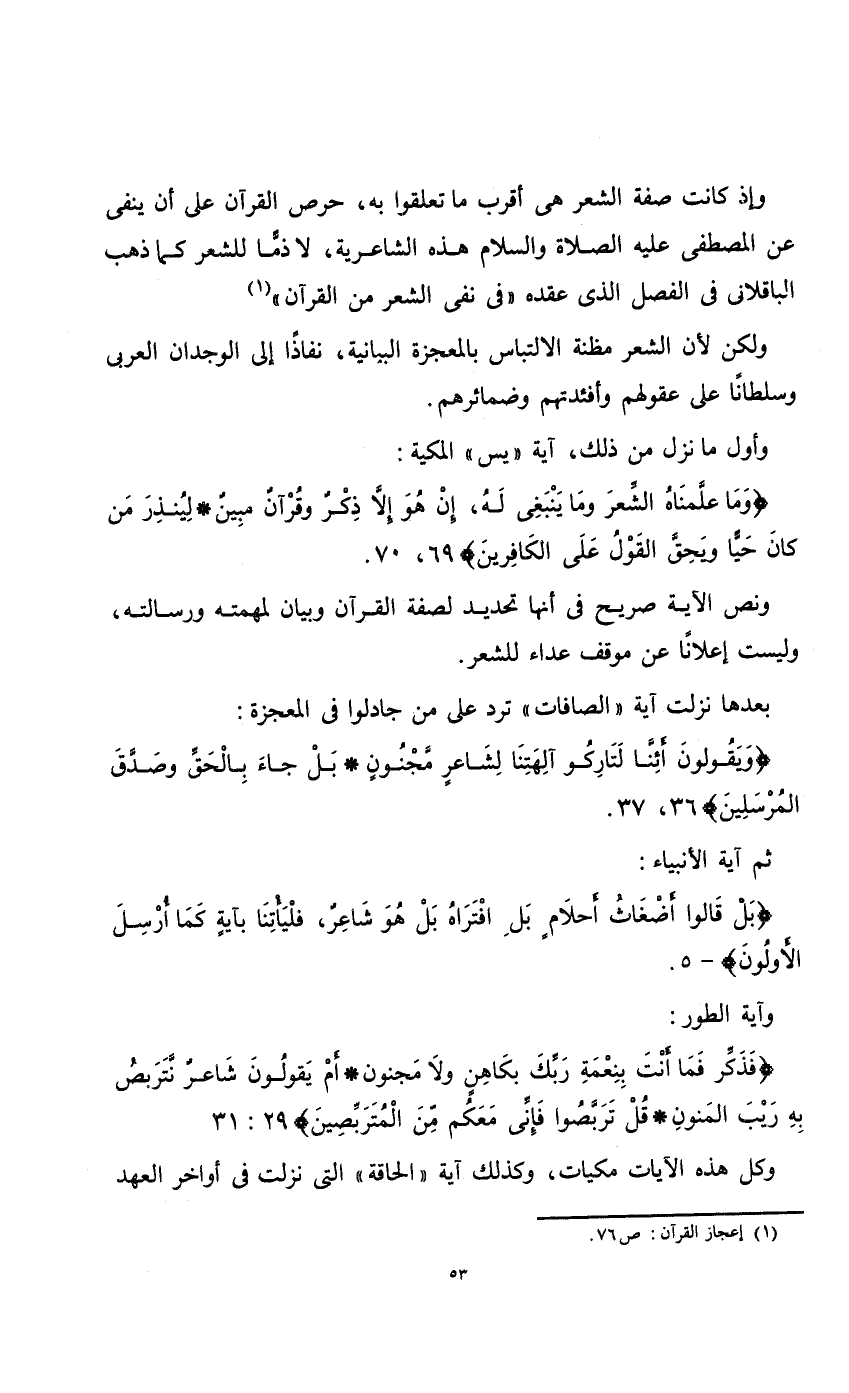 وإذ كانت صفة الشعر هى أقرب ما تعلقوا به، حرص القرآن على أن ينفى
عن المصطفى عليه الصلاة والسلام هذه الشاعرية، لا ذمًّا للشعر كما ذهب
الباقلانى فى الفصل الذى عقده «فى نفى الشعر من القرآن»(١)
ولكن لأن الشعر مظنة الالتباس بالمعجزة البيانية، نفاذًا إلى الوجدان العربى
وسلطانًا على عقولهم وأفئدتهم وضمائرهم.
وأول ما نزل من ذلك، آية «يس» المكية :
﴿وَمَا علَّمنَاهُ الشِّعرَ ومَا يَنْبَغِى لَـهُ، إِنْ هُوَ إِلَّا ذِكْـرٌ وقُرْآنٌ مبِينٌ * لِيُنـذِرَ مَن
كانَ حَيًّا ويَحِقَّ القَوْلُ عَلَى الكَافِرِينَ﴾ ٦٩، ٧٠.
ونص الآيـة صريـح فى أنها تحديـد لصفة القـرآن وبيان لمهمتـه ورسـالتـه،
وليست إعلانًا عن موقف عداء للشعر.
بعدها نزلت آية «الصافات» ترد على من جادلوا فى المعجزة :
﴿وَيَقُـولونَ أَئِنَّـا لَتَارِكُـو آلِهَتِنَا لِشَـاعرٍ مَّجْنُـونٍ * بَـلْ جـاءَ بِـالْحَقِّ وصَـدَّقَ
المُرْسَلِينَ﴾ ٣٦، ٣٧.
ثم آية الأنبياء :
﴿بَلْ قَالوا أَضْغَاثُ أَحلَامٍ بَلِ افْتَرَاهُ بَلْ هُوَ شَاعِرٌ، فلْيَأْتِنَا بآيةٍ كَمَا أُرْسِلَ
الأَولُونَ﴾ - ٥.
وآية الطور :
﴿فَذَكِّر فَمَا أَنْتَ بِنِعْمَةِ رَبِّكَ بكَاهِنٍ ولَا مَجنون * أَمْ يَقولُـونَ شَاعـرٌ نَّتَرَبصُ
بِهِ رَيْبَ المَنونِ * قُلْ تَرَبَّصُوا فَإِنِّى مَعَكُم مِّنَ الْمُتَرَبِّصِينَ﴾ ٢٩ : ٣١
وكل هذه الآيات مكيات، وكذلك آية «الحاقة» التى نزلت فى أواخر العهد
(١) إعجاز القرآن : ص ٧٦.
٥٣